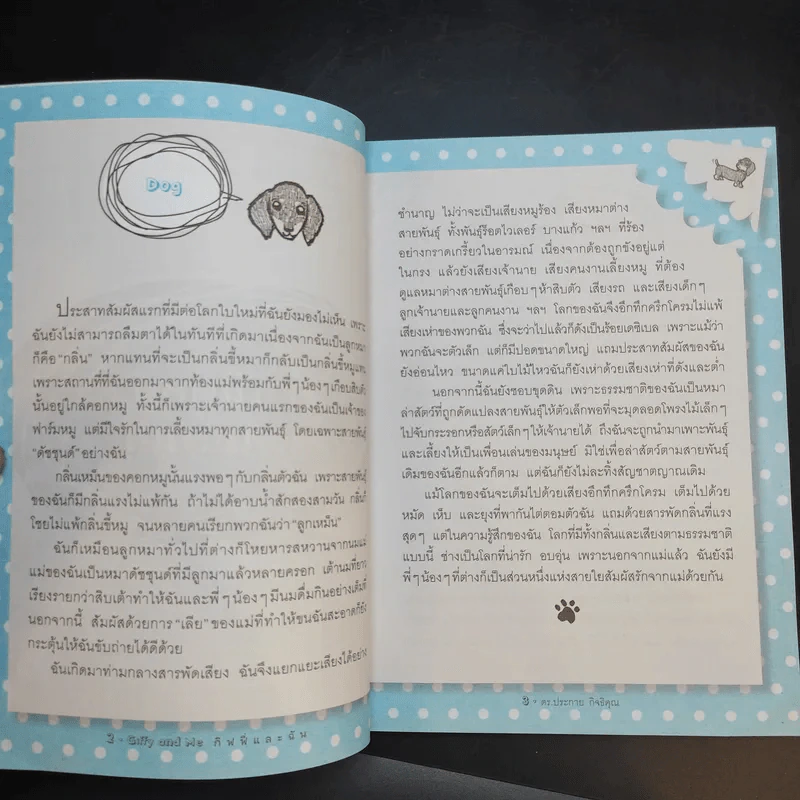 Dog
ประสาทสัมผัสแรกที่มีต่อโลกใบใหม่ที่ฉันยังมองไม่เห็น เพราะ
ฉันยังไม่สามารถลืมตาได้ในทันทีที่เกิดมาเนื่องจากฉันเป็นลูกหมา
ก็คือ “กลิ่น” หากแทนที่จะเป็นกลิ่นขี้หมาก็กลับเป็นกลิ่นขี้หมูแทน
เพราะสถานที่ที่ฉันออกมาจากท้องแม่พร้อมกับพี่ๆน้องๆเกือบสิบตัว
นั้นอยู่ใกล้คอกหมู ทั้งนี้ก็เพราะเจ้านายคนแรกของฉันเป็นเจ้าของ
ฟาร์มหมู แต่มีใจรักในการเลี้ยงหมาทุกสายพันธุ์ โดยเฉพาะสายพันธุ์
“ดัชชุนด์” อย่างฉัน
กลิ่นเหม็นของคอกหมูนั้นแรงพอๆกับกลิ่นตัวฉัน เพราะสายพันธุ์
ของฉันก็มีกลิ่นแรงไม่แพ้กัน ถ้าไม่ได้อาบน้ำสักสองสามวัน กลิ่นก็
โชยไม่แพ้กลิ่นขี้หมู จนหลายคนเรียกพวกฉันว่า “ลูกเหม็น”
ฉันก็เหมือนลูกหมาทั่วไปที่ต่างก็โหยหารสหวานจากนมแม่
แม่ของฉันเป็นหมาดัชชุนด์ที่มีลูกมาแล้วหลายครอก เต้านมที่ยาว
เรียงรายกว่าสิบเต้าทำให้ฉันและพี่ๆน้องๆมีนมดื่มกินอย่างเต็มที่
นอกจากนี้ สัมผัสด้วยการ “เลีย” ของแม่ที่ทำให้ขนฉันสะอาดก็ยัง
กระตุ้นให้ฉันขับถ่ายได้ดีด้วย
ฉันเกิดมาท่ามกลางสารพัดเสียง ฉันจึงแยกแยะเสียงได้อย่าง
2 • Giffy and Me กิฟฟี่และฉัน
ชำนาญ ไม่ว่าจะเป็นเสียงหมูร้อง เสียงหมาต่าง
สายพันธุ์ ทั้งพันธุ์ร็อตไวเลอร์ บางแก้ว ฯลฯ ที่ร้อง
อย่างกราดเกรี้ยวในอารมณ์ เนื่องจากต้องถูกขังอยู่แต่
ในกรง แล้วยังเสียงเจ้านาย เสียงคนงานเลี้ยงหมู ที่ต้อง
ดูแลหมาต่างสายพันธุ์เกือบๆห้าสิบตัว เสียงรถ และเสียงเด็กๆ
ลูกเจ้านายและลูกคนงาน ฯลฯ โลกของฉันจึงอึกทึกครึกโครมไม่แพ้
เสียงเห่าของพวกฉัน ซึ่งจะว่าไปแล้วก็ดังเป็นร้อยเดซิเบล เพราะแม้ว่า
พวกฉันจะตัวเล็ก แต่ก็มีปอดขนาดใหญ่ แถมประสาทสัมผัสของฉัน
ยังอ่อนไหว ขนาดแค่ใบไม้ไหวฉันก็ยังเห่าด้วยเสียงเห่าที่ดังและต่ำ
นอกจากนี้ฉันยังชอบขุดดิน เพราะธรรมชาติของฉันเป็นหมา
ล่าสัตว์ที่ถูกดัดแปลงสายพันธุ์ให้ตัวเล็กพอที่จะมุดลอดโพรงไม้เล็กๆ
ไปจับกระรอกหรือสัตว์เล็กๆให้เจ้านายได้ ถึงฉันจะถูกนำมาเพาะพันธุ์
และเลี้ยงให้เป็นเพื่อนเล่นของมนุษย์ มิใช่เพื่อล่าสัตว์ตามสายพันธุ์
เดิมของฉันอีกแล้วก็ตาม แต่ฉันก็ยังไม่ละทิ้งสัญชาตญาณเดิม
แม้โลกของฉันจะเต็มไปด้วยเสียงอึกทึกครึกโครม เต็มไปด้วย
หมัด เห็บ และยุงที่พากันไต่ตอมตัวฉัน แถมด้วยสารพัดกลิ่นที่แรง
สุดๆ แต่ในความรู้สึกของฉัน โลกที่มีทั้งกลิ่นและเสียงตามธรรมชาติ
แบบนี้ ช่างเป็นโลกที่น่ารัก อบอุ่น เพราะนอกจากแม่แล้ว ฉันยังมี
พี่ๆน้องๆที่ต่างก็เป็นส่วนหนึ่งแห่งสายใยสัมผัสรักจากแม่ด้วยกัน
3 • ดร.ประกาย กิจธิคุณ